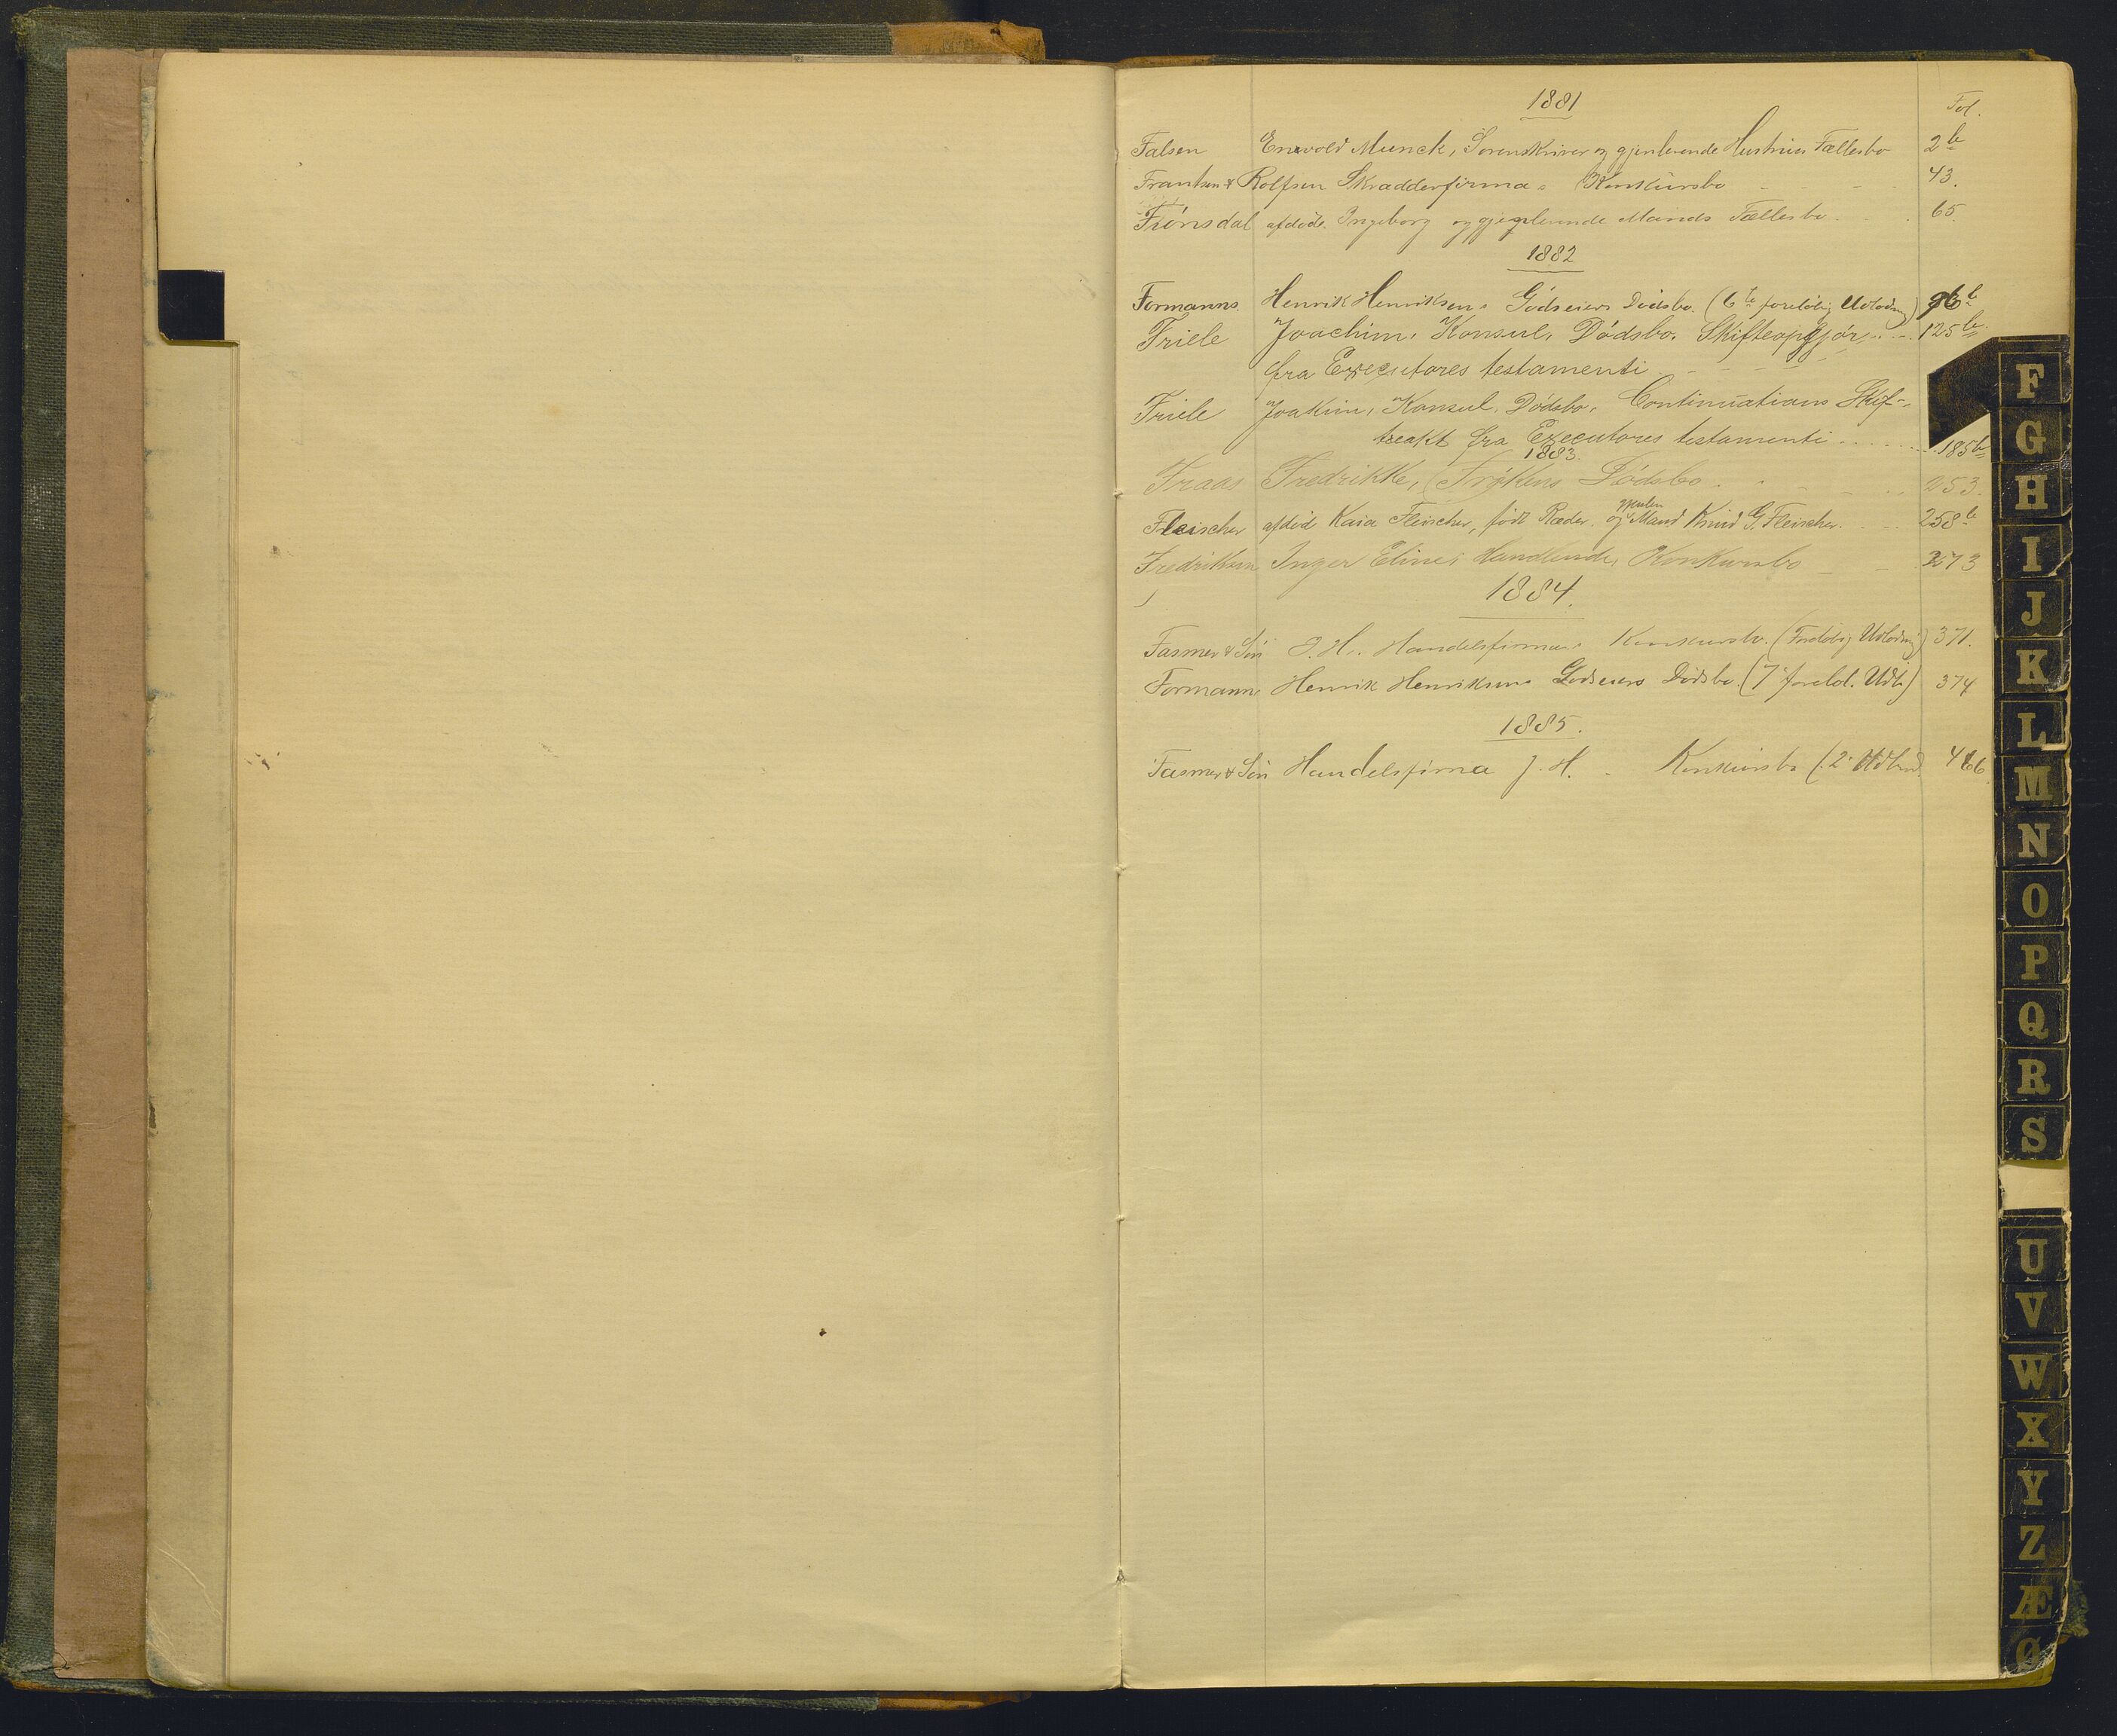 1881
Fol.
Falsen Enevold Munck, Sorenskriver og gjenlevende Hustrues Fællesbo 2b
Frantsen & Rolfsen Skrædderfirmas Konkursbo 43.
afdøde Ingeborg og gjenlevende Mands Fællesbo 65.
1882
Formanns Henrik Henriksens Gódseiers Dódsbo. (6te foreløbig Udlodning) 96b
Friele Joachim, Konsul, Dódsbo. Skifteopgjór 125b
fra Executores testamenti
Friele Joakim, Konsul, Dódsbo, Continuations Skif-
teakt fra Executores testamenti 185b
1883.
Fredrikke, Frókens Dódsbo. 253.
Fleischer afdøde Kaia Fleischer, født Ræder og gjenlev Mand Knud G. Fleischer. 258b
Fredriksen Inger Eline, Handlende, Konkursbo 273
1884.
Fasmer & Sön J. H. Handelsfirmas Konkursbo. (Foreløbig Udlodning) 371.
Formann Henrik Henriksens Godseiers Dödsbo. (7 forelöb. Udl.) 374
1885.
Fasmer & Sön Handelsfirma J. H. Konkursbo (2. Udlodn) 466
F
G
H
I
J
K
L
M
N
O
P
Q
R
S
U
V
W
X
Y
Z
Æ
Ø